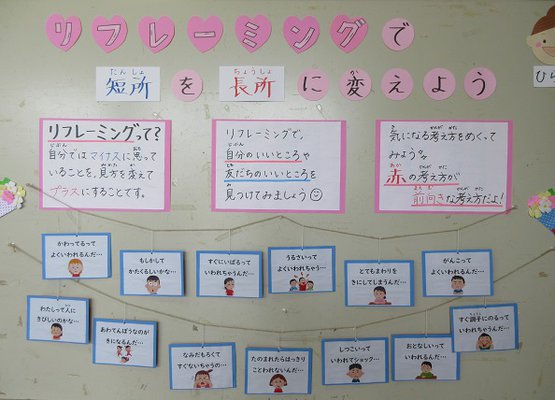 リフレーミングで
短所を長所に変えよう
リフレーミングって?
自分ではマイナスに思って
いることを、見方を変えて
プラスにすることです。
リフレーミングで、
自分のいいところや
友だちのいいところを
見つけてみましょう
気になる考え方をめくって
みよう
赤の考え方が
前向きな考え方だよ!
かわってるって
よくいわれるんだ…
もしかして
かたくるしいかな…
すぐにいばるって
いわれちゃうんだ…
うるさいって
よくいわれちゃう…
とてもまわりを
きにしてしまうんだ…
がんこって
よくいわれるんだ…
わたしって人に
きびしいのかな…
あわてんぼうなのが
きになるんだ…
なみだもろくて
すぐないちゃうの…
たのまれたらはっきり
ことわれないんだ…
しつこいって
いわれてショック…
おとなしいって
いわれるんだ…
すぐ調子にのるって
いわれちゃうんだ…